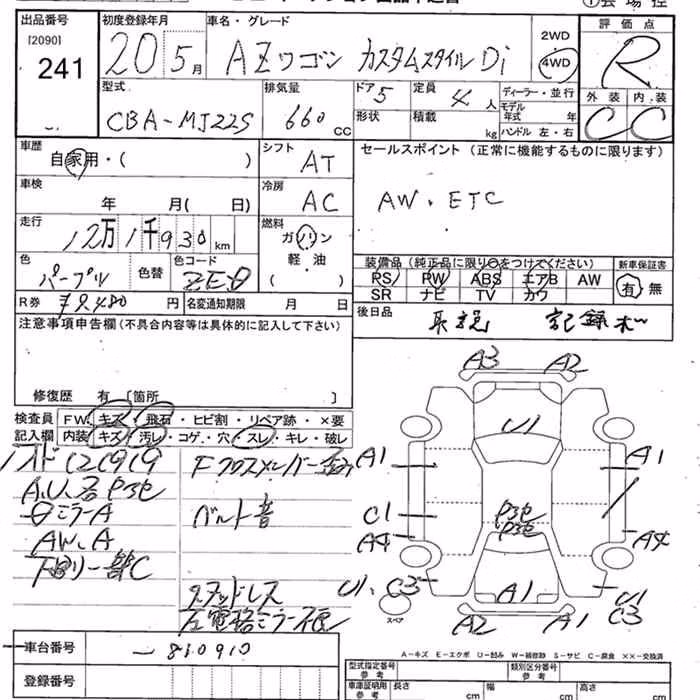 出品番号
[2090]
241
初度登録年月
20 5月
車名・グレード
AZワゴン カスタムスタイル Di
2WD
4WD
評価点
R
外装 内装
C C
型式
CBA-MJ22S
排気量
660 CC
ドア 5
形状
定員 4 人
積載 kg
ディーラー・並行
モデル年式 年
ハンドル 左・右
車歴
自家用・( )
シフト AT
車検
年 月( 日)
冷房 AC
走行
12万1千930km
燃料
ガソリン
軽油
( )
色 パープル
色替
色コード
R券 円
名変通知期限 月 日
セールスポイント (正常に機能するものに限ります)
AW. ETC
装備品 (純正品に限り○をつけてください)
PS PW ABS エアB AW
SR ナビ TV カワ
新車保証書
有 無
後日品
取説 記録ボー
注意事項申告欄 (不具合内容等は具体的に記入して下さい)
修復歴 有 [箇所 ]
検査員記入欄
FW. キズ・飛石・ヒビ割・リペア跡・×要
内装 キズ・汚レ・コゲ・穴・スレ・キレ・破レ
Fクロスメンバー
ベルト音
ミラーA
AW.A
スタッドレス
A3 A2
U1
A1 A1
C1
A4 A4
U1. C3
A1
U1
C3
A2 A1
スペア
A-キズ E-エクボ U-凹み W-補修跡 S-サビ C-腐食 ××-交換済
車台番号
810910
登録番号
型式指定番号
参考
類別区分番号
参考
車庫証明用
参考
長さ cm 幅 cm 高さ cm